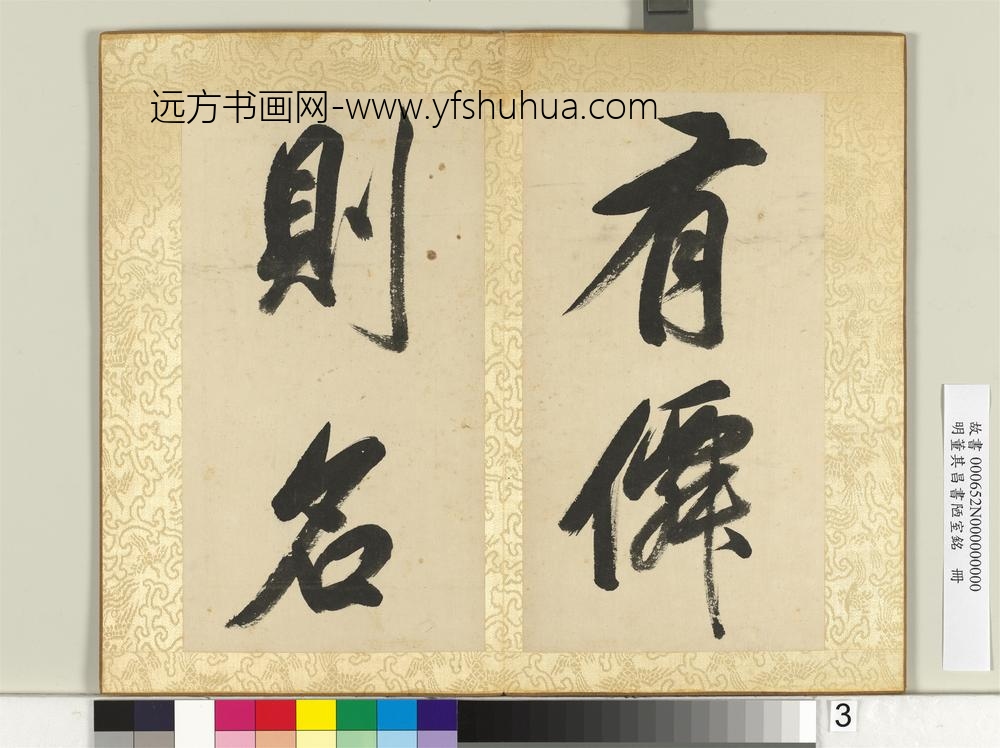 远方书画网-www.yfshuhua.com
有僊
則名
故書 000652N000000000
明董其昌書陋室銘 冊
3